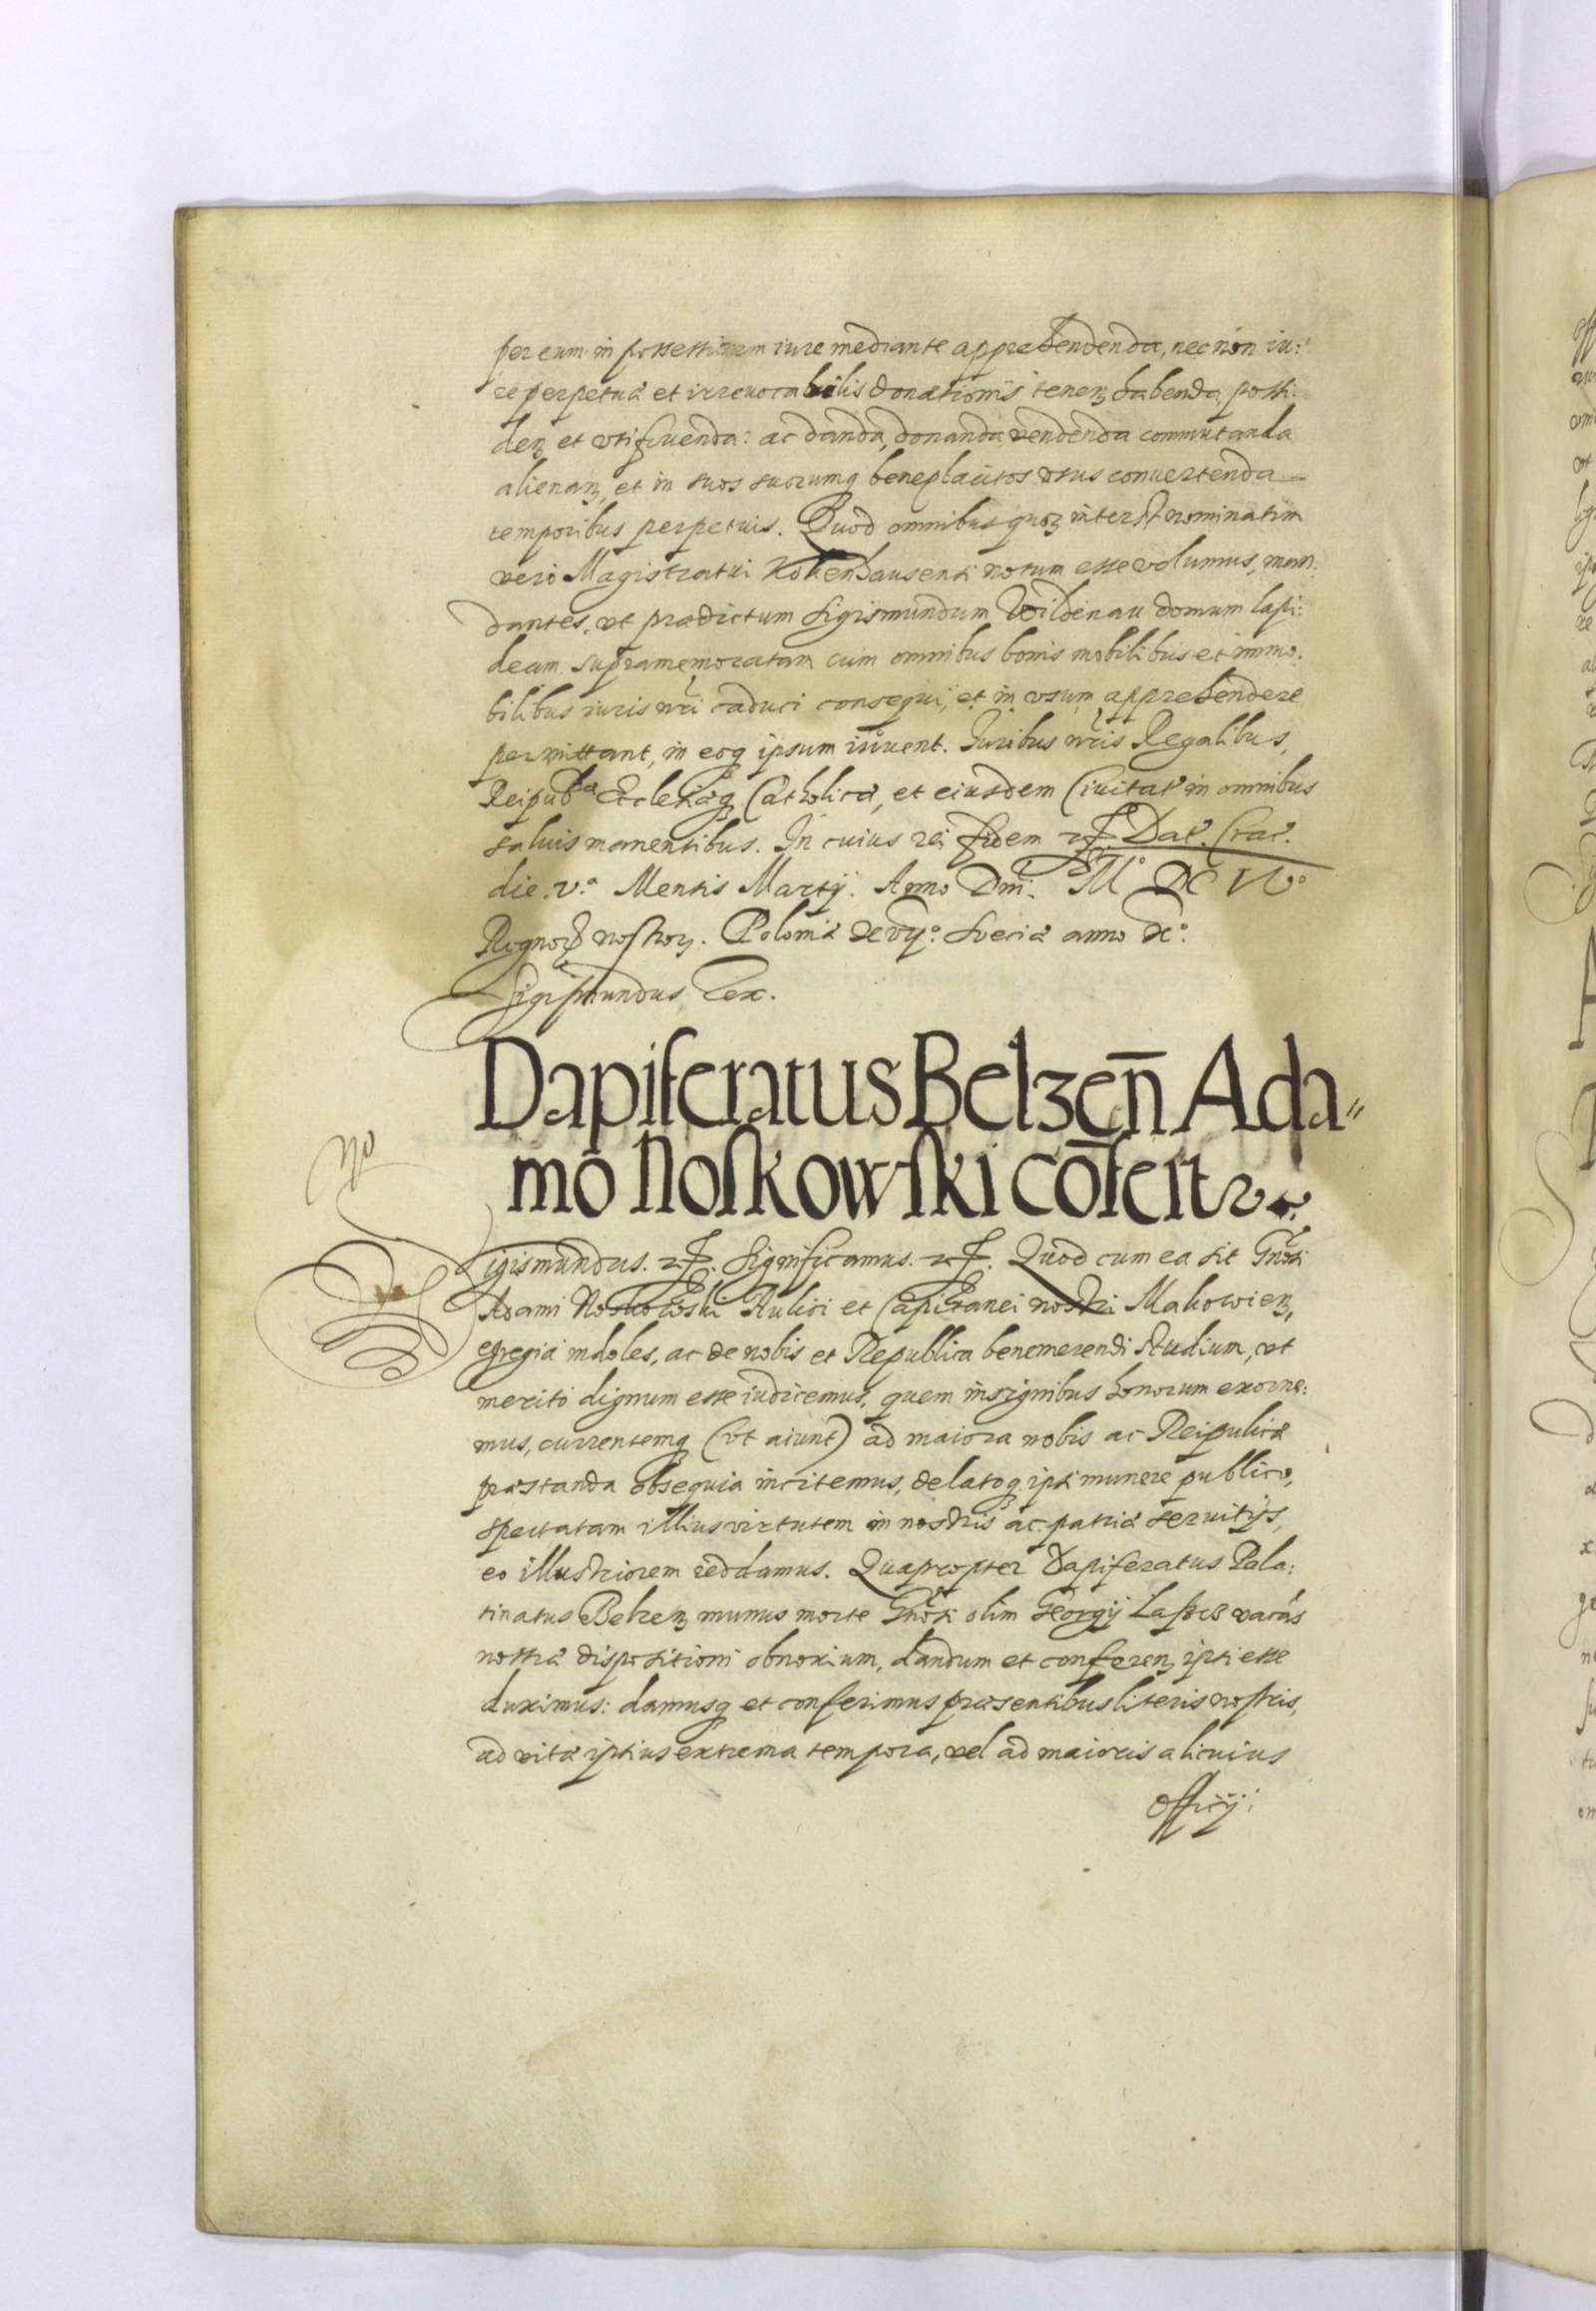 per eum in possessionem iure mediante apprehendenda, nec non iu:
re perpetuæ et irreuocabilis donationis tenenꝫ habenda, possi-
denꝫ et vtifruenda: ac danda, donanda, vendenda commutanda
alienanꝫ, et in suos suorumqꝫ beneplacitos vsus conuertenda
temporibus perpetuis. Quod omnibus quoꝝ interest nominatim
vero Magistratui Kokenhausensi notum esse volumus, man:
dantes, vt prædictum Sigismundum Wildenau domum lapi:
deam supramemoratam cum omnibus bonis mobilibus et immo:
bilibus iuris nr̃i caduci consequi, et in vsum apprehendere
permittant, in eoqꝫ ipsum iuuent. Iuribus nr̃is Regalibus,
Reipub:cæ Ecclesiæqꝫ Catholicæ, et eiusdem Ciuitat: in omnibus
saluis manentibus. In cuius rei fidem etc. Dat. Crac.
die. v.a Mensis Martij. Anno Dni. Mo DC IVo
Regnorꝝ nostroꝝ. Poloniæ XVIJo: Sueciæ anno Xo.
Sigismundus Rex.
Dapiferatus Belzen̄ Ada"
mo Noskowski cōfert~
No
Sigismundus. etc. Significamus. etc. Quod cum ea sit Gñosi
Adami Noskowski Aulici et Capitanei nostri Makowienꝫ,
egregia indoles, ac de nobis et Republica benemerendi studium, vt
merito dignum esse iudicemus, quem insignibus honorum exorne:
mus, currentemqꝫ (vt aiunt) ad maiora nobis ac Reipulicæ
præstanda obsequia incitemus, delatoqꝫ ipsi munere publico,
spectatam illius virtutem in nostris ac patriæ seruitijs,
eo illustriorem reddamus. Quapropter Dapiferatus Pala:
tinatus Belzenꝫ munus morte Gñosi olim Georgij vacãs
nostræ dispositioni obnoxium, dandum et conferenꝫ ipsi esse
duximus: damusqꝫ et conferimus præsentibus literis nostris,
ad vitæ ipsius extrema tempora, vel ad maioris alicuius
officij: